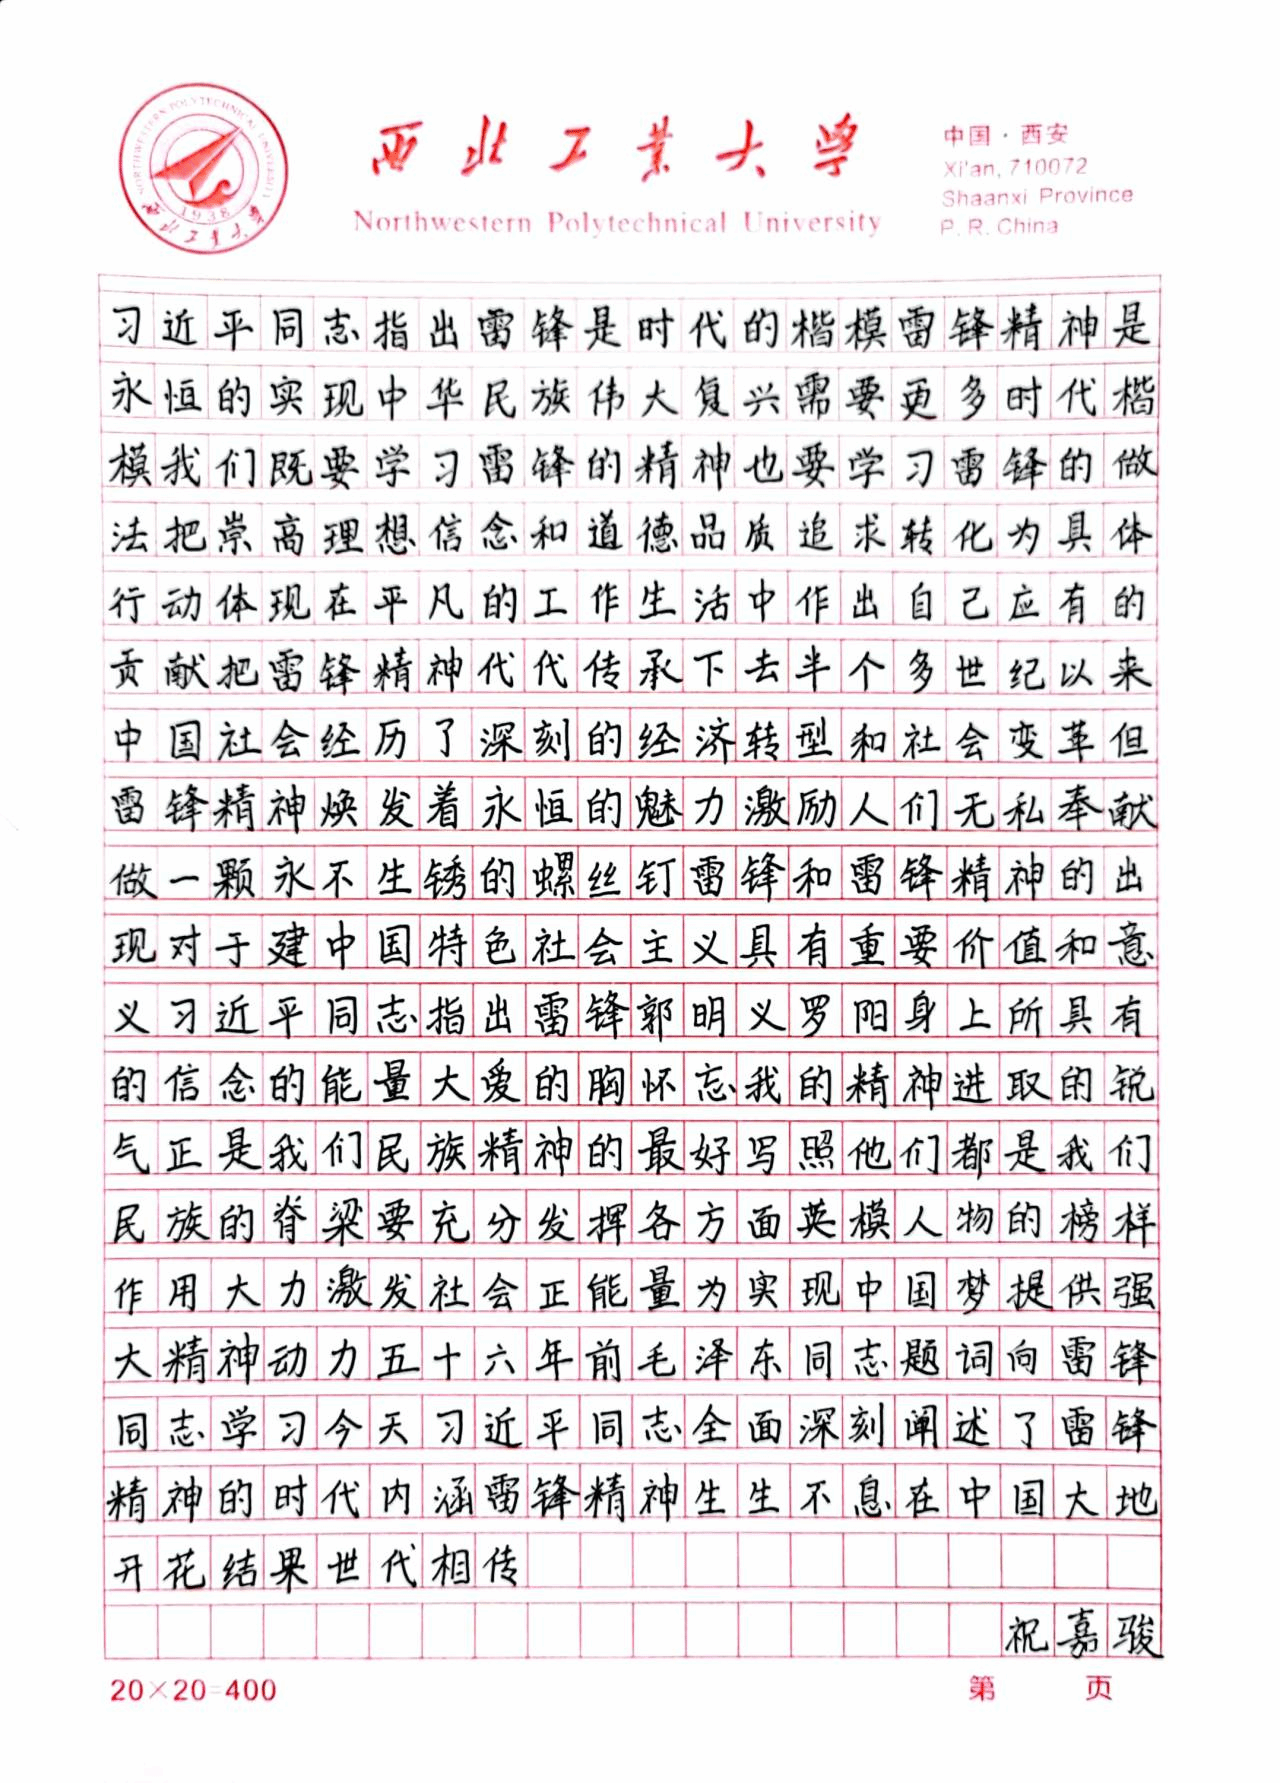 西北工业大学
Northwestern Polytechnical University
中国·西安
Xi'an, 710072
Shaanxi Province
P. R. China
NORTHWESTERN POLYTECHNICAL UNIVERSITY
1938
西北工业大学
习近平同志指出雷锋是时代的楷模雷锋精神是
永恒的实现中华民族伟大复兴需要更多时代楷
模我们既要学习雷锋的精神也要学习雷锋的做
法把崇高理想信念和道德品质追求转化为具体
行动体现在平凡的工作生活中作出自己应有的
贡献把雷锋精神代代传承下去半个多世纪以来
中国社会经历了深刻的经济转型和社会变革但
雷锋精神焕发着永恒的魅力激励人们无私奉献
做一颗永不生锈的螺丝钉雷锋和雷锋精神的出
现对于建中国特色社会主义具有重要价值和意
义习近平同志指出雷锋郭明义罗阳身上所具有
的信念的能量大爱的胸怀忘我的精神进取的锐
气正是我们民族精神的最好写照他们都是我们
民族的脊梁要充分发挥各方面英模人物的榜样
作用大力激发社会正能量为实现中国梦提供强
大精神动力五十六年前毛泽东同志题词向雷锋
同志学习今天习近平同志全面深刻阐述了雷锋
精神的时代内涵雷锋精神生生不息在中国大地
开花结果世代相传
祝嘉骏
20×20=400
第 页